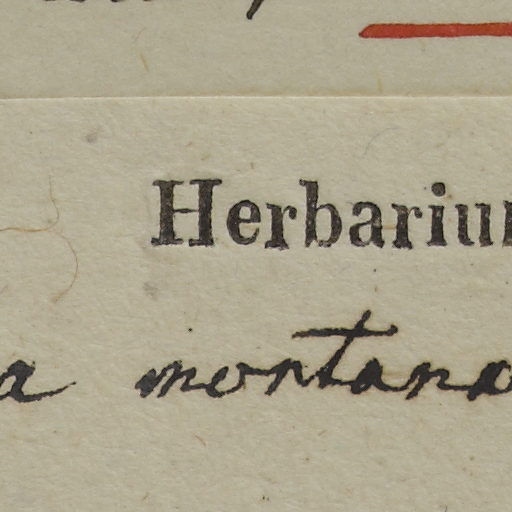 Herbariu
a montana